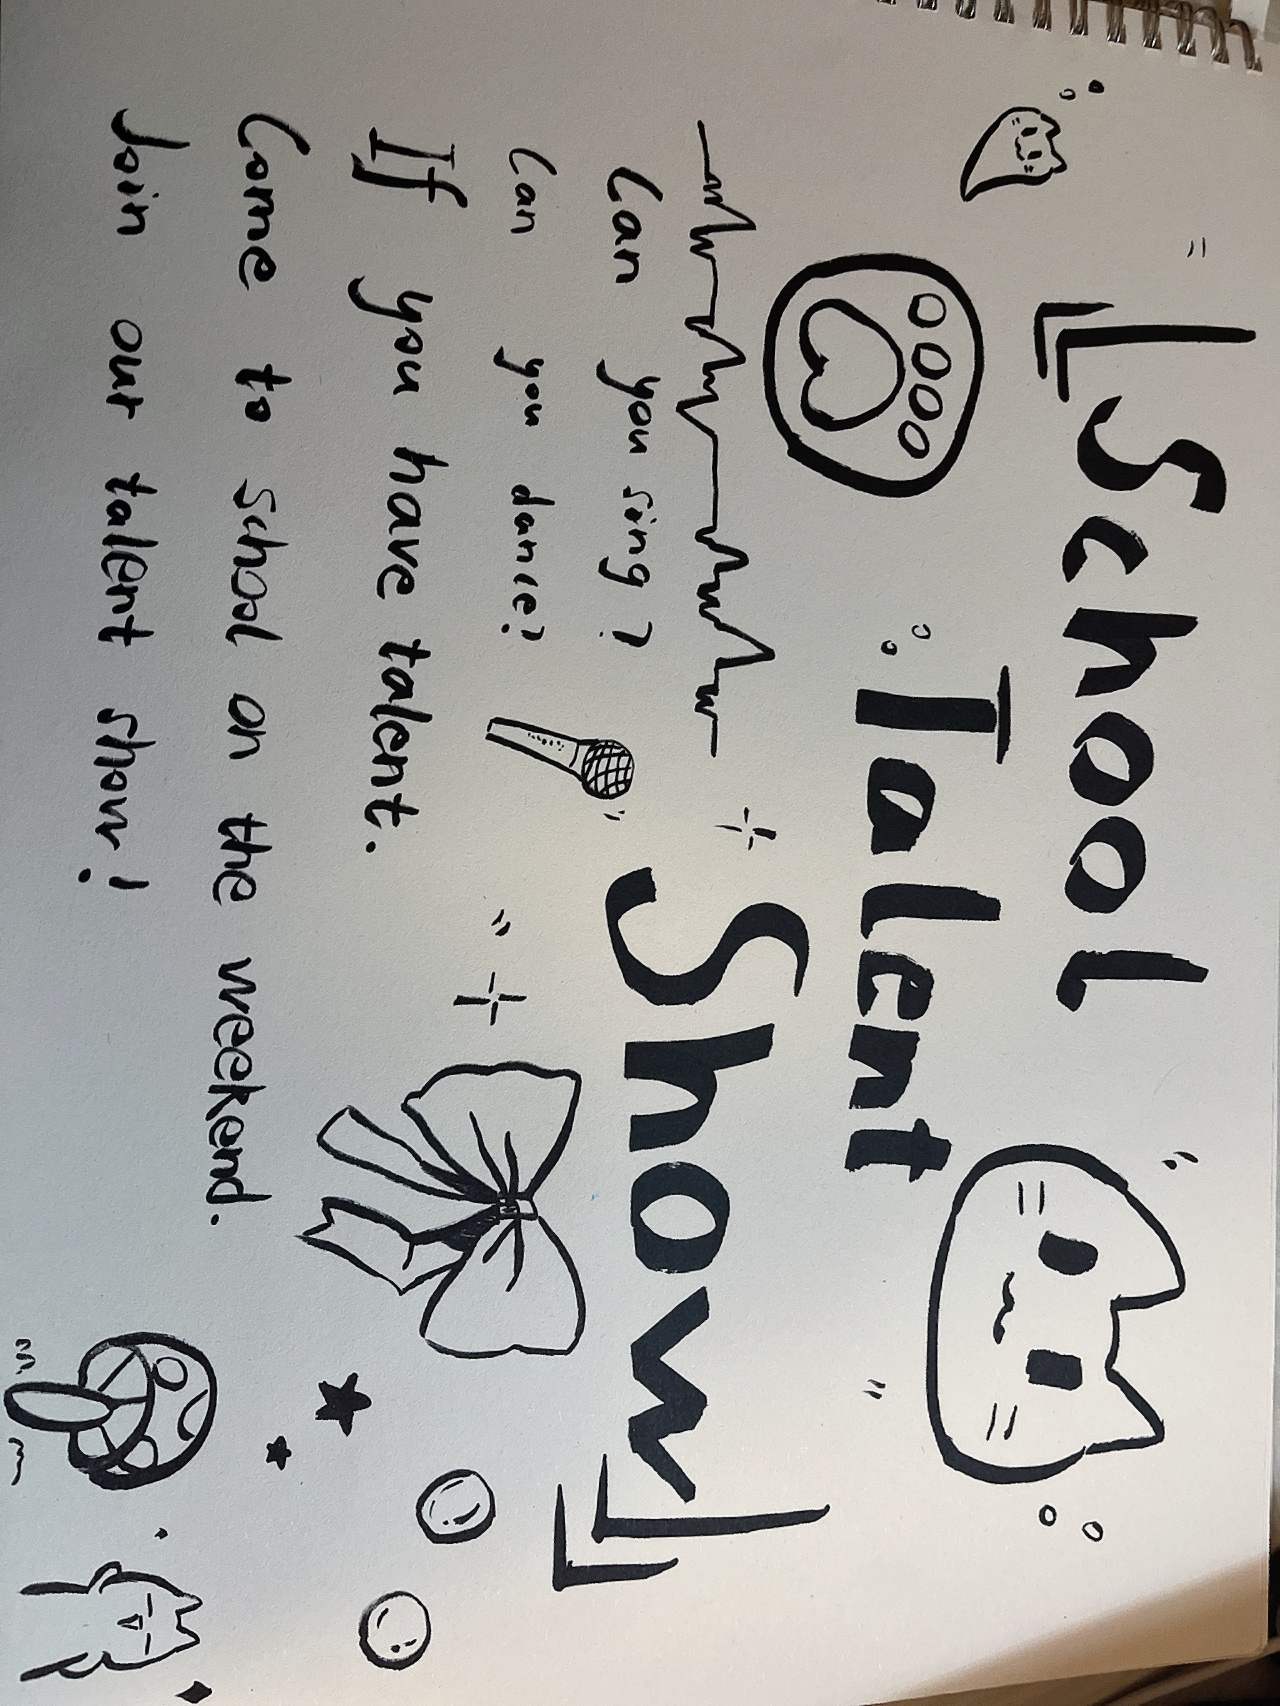 School
Talent
Show
Can you sing?
Can you dance?
If you have talent.
Come to school on the weekend.
Join our talent show!